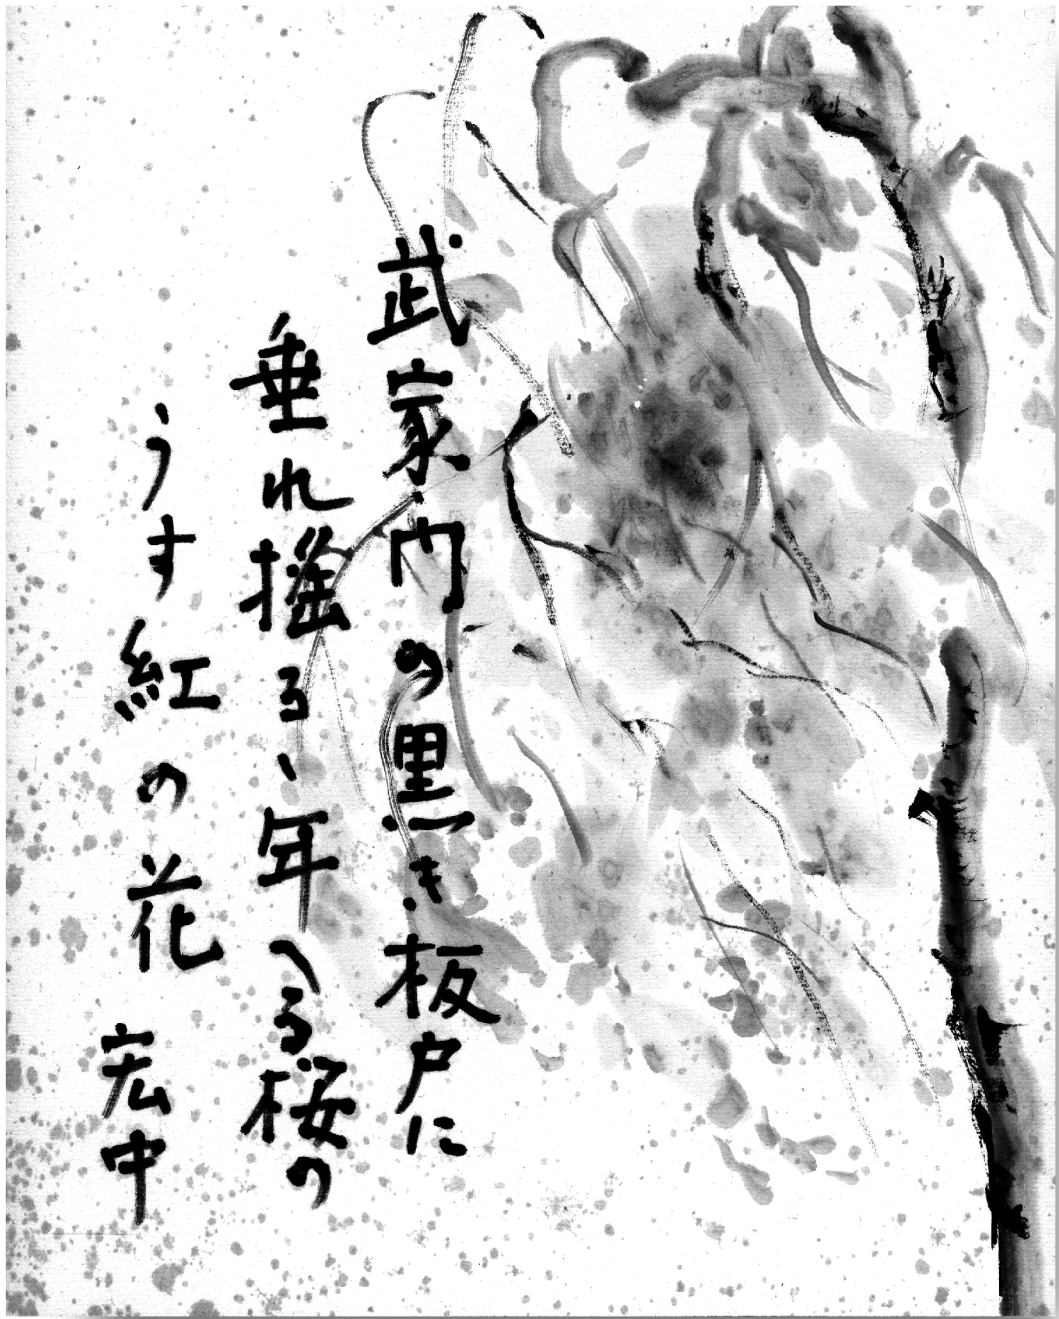 武家門の黒き板戸に
垂れ搖るゝ年へる桜の
うす紅の花 宏中